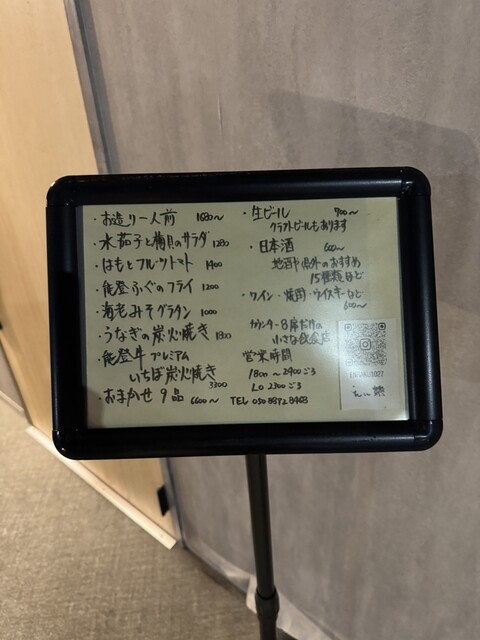 ・お造り一人前 1680〜
・水茄子と梅貝のサラダ 1280
・はもとフルーツトマト 1400
・能登ふぐのフライ 1200
・海老みそグラタン 1000
・うなぎの炭火焼き 1800
・能登牛プレミアム
いちぼ炭火焼き
3300
・おまかせ9品 6600〜
・生ビール 700〜
クラフトビールもあります
・日本酒 600〜
地酒や県外のおすすめ
15種類ほど
・ワイン・焼酎・ウイスキーなど
600〜
カウンター8席だけの
小さな飲食店
営業時間
1800〜2400ごろ
LO 2300ごろ
TEL 050 8872 8468